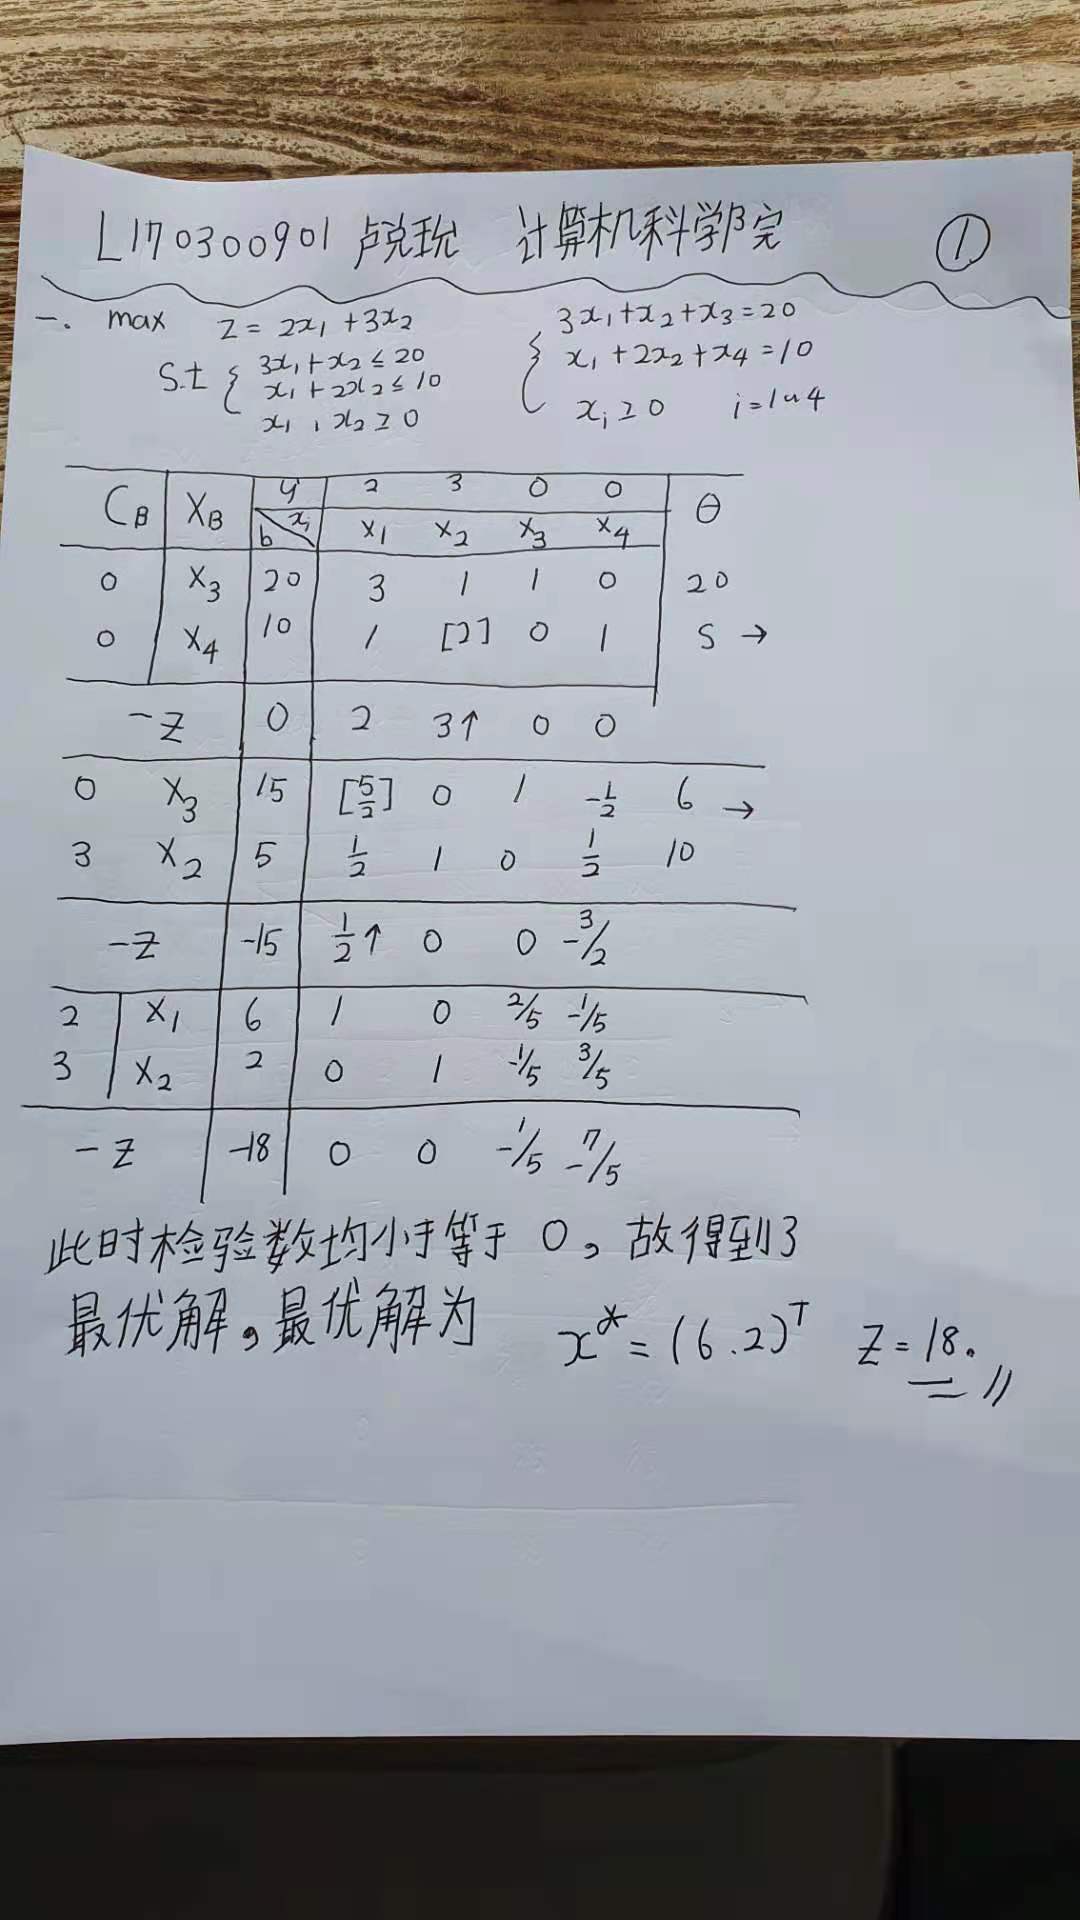 L170300901 卢克珗 计算机科学院 ①
一. max z = 2x₁ + 3x₂
s.t { 3x₁ + x₂ ≤ 20
x₁ + 2x₂ ≤ 10
x₁ , x₂ ≥ 0
{ 3x₁ + x₂ + x₃ = 20
x₁ + 2x₂ + x₄ = 10
xᵢ ≥ 0 i = 1~4
C_B X_B 2 3 0 0 θ
b xᵢ x₁ x₂ x₃ x₄
0 x₃ 20 3 1 1 0 20
0 x₄ 10 1 [2] 0 1 5 →
-Z 0 2 3↑ 0 0
0 x₃ 15 [5/2] 0 1 -1/2 6 →
3 x₂ 5 1/2 1 0 1/2 10
-Z -15 1/2↑ 0 0 -3/2
2 x₁ 6 1 0 2/5 -1/5
3 x₂ 2 0 1 -1/5 3/5
-Z -18 0 0 -1/5 -7/5
此时检验数均小于等于 0, 故得到了
最优解, 最优解为 x* = (6.2)ᵀ Z = 18.